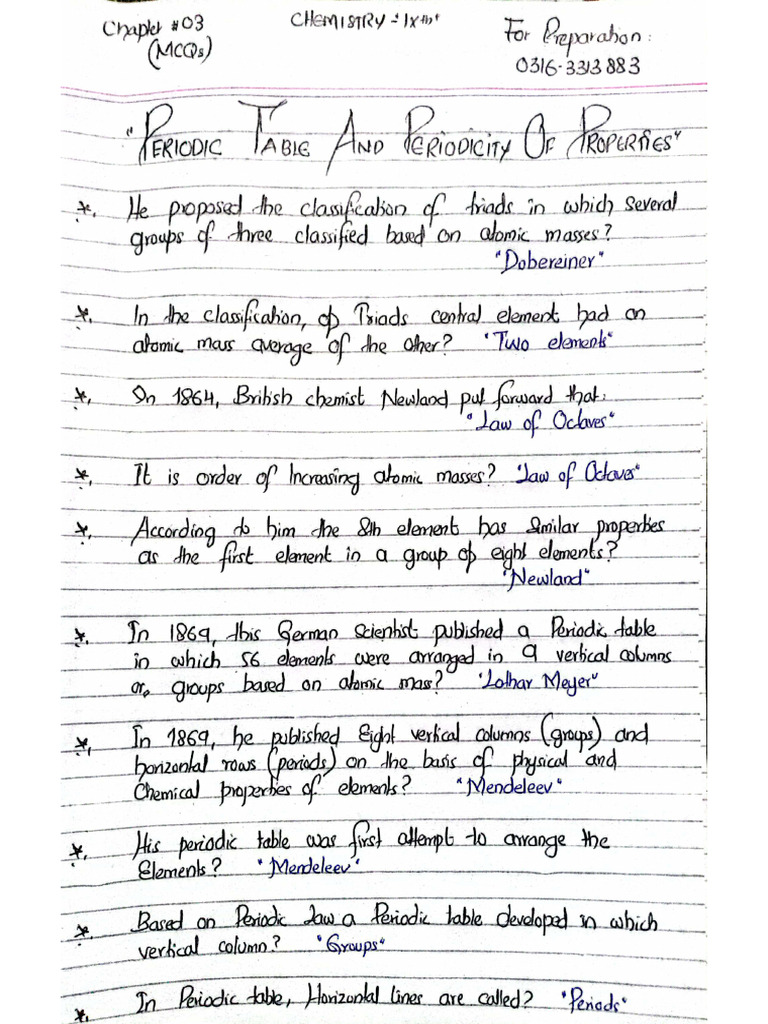 Chapter #03
(MCQs)
CHEMISTRY - IXth
For Preparation:
0316-3313883
"PERIODIC TABLE AND PERIODICITY OF PROPERTIES"
*. He proposed the classification of triads in which several
groups of three classified based on atomic masses?
"Dobereiner"
*. In the classification, of Triads central element had an
atomic mass average of the other? "Two elements"
*. In 1864, British chemist Newland put forward that:
"Law of Octaves"
*. It is order of Increasing atomic masses? "Law of Octaves"
*. According to him the 8th element has similar properties
as the first element in a group of eight elements?
"Newland"
*. In 1869, this German Scientist published a Periodic table
in which 56 elements were arranged in 9 vertical columns
or, groups based on atomic mass? "Lothar Meyer"
*. In 1869, he published Eight vertical columns (groups) and
horizontal rows (periods) on the basis of physical and
Chemical properties of elements? "Mendeleev"
*. His periodic table was first attempt to arrange the
Elements? "Mendeleev"
*. Based on Periodic Law a Periodic table developed in which
vertical column? "Groups"
*. In Periodic table, Horizontal lines are called? "Periods"